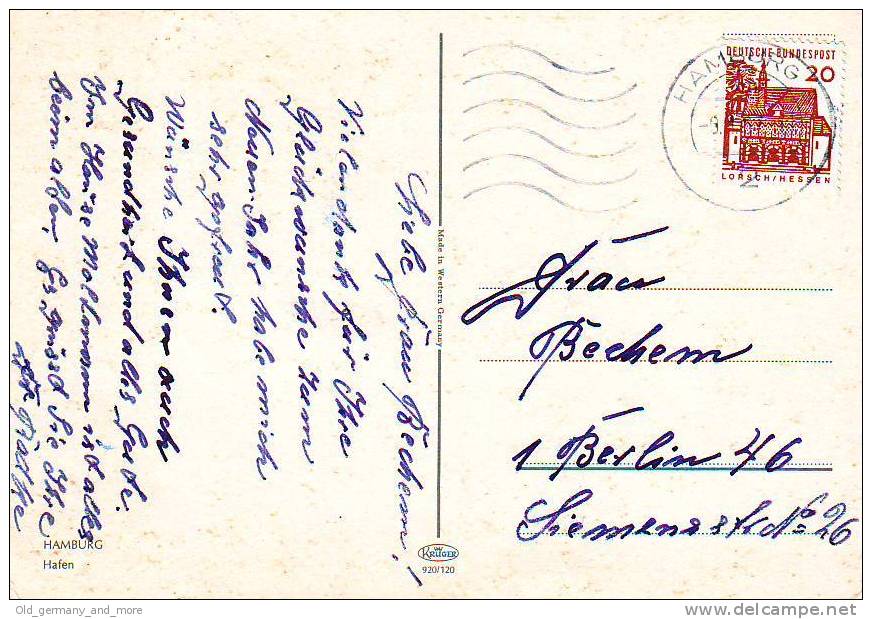 Liebe Frau Bechem!
Vielen Dank für Ihre
Glückwünsche zum
Neuen Jahr habe mich
sehr gefreut.
Wünsche Ihnen auch
Gesundheit und alles Gute.
Vom Hause ist alles
beim alten. Es grüsst Sie Ihre
HAMBURG
Hafen
Made in Western Germany
KRÜGER
920/120
DEUTSCHE BUNDESPOST
20
LORSCH/HESSEN
HAMBURG
2
Frau
Bechem
1 Berlin 46
Siemensstr No 26
Old_germany_and_more
delcampe.net